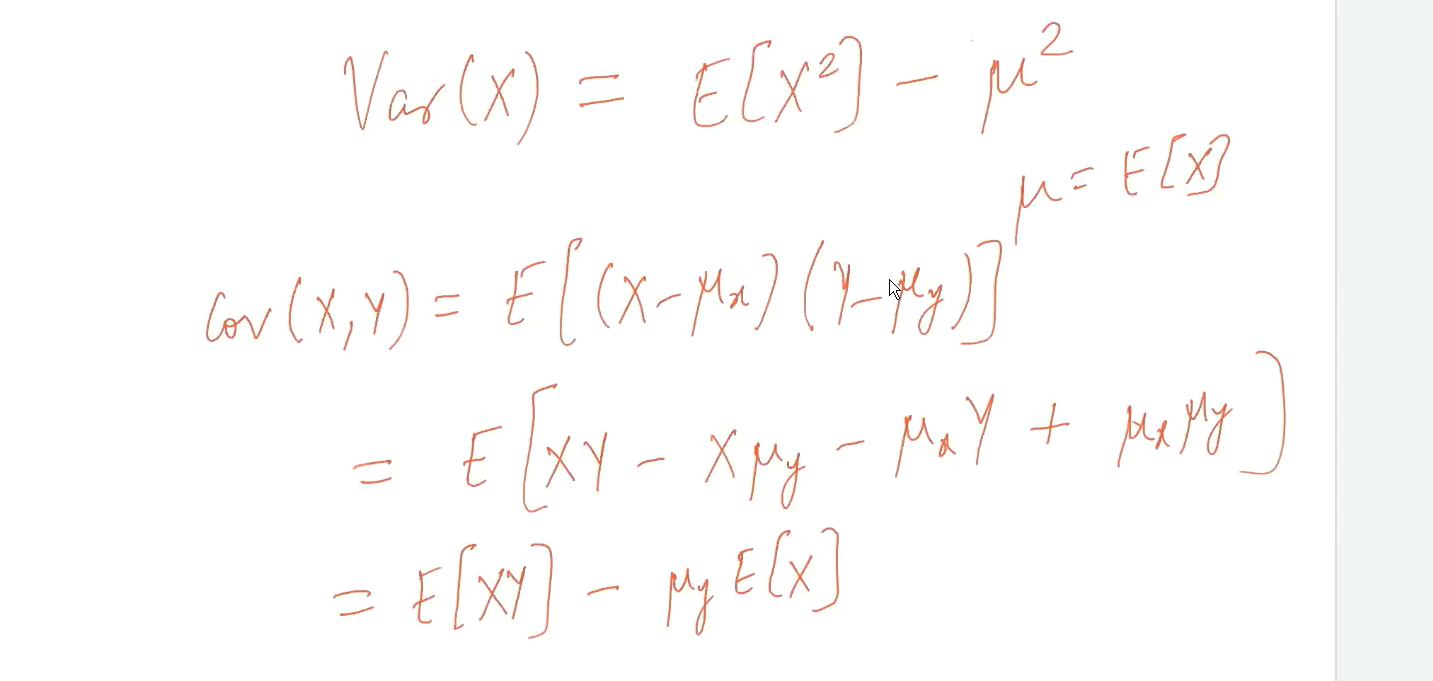 Var(X) = E[X²] - μ²
μ = E[X]
Cov(X,Y) = E[(X-μₓ)(Y-μ_y)]
= E[XY - Xμ_y - μₓY + μₓμ_y]
= E[XY] - μ_y E[X]